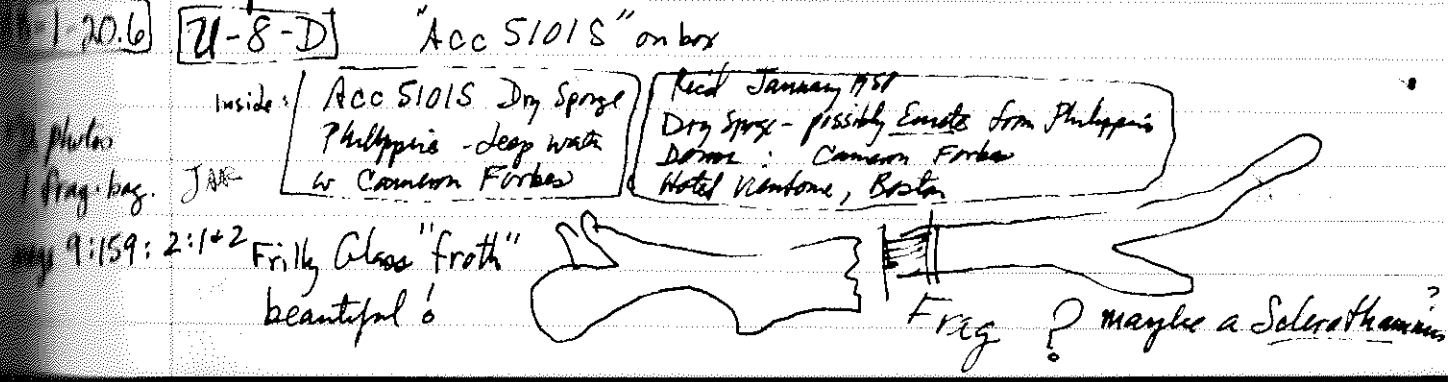 1-20.6 U-8-D "Acc 5101S" on box
inside: Acc 5101S Dry Sponge
Philippine - deep water
W Cameron Forbes
Rec'd January 1951
Dry Sponge - possibly from Philippines
Donor: Cameron Forbes
Hotel Vendome, Boston
2 photos
1 frag. bag.
9:159: 2:1+2
Frilly Glass "froth"
beautiful!
Frag ? maybe a Sclerothamnus?